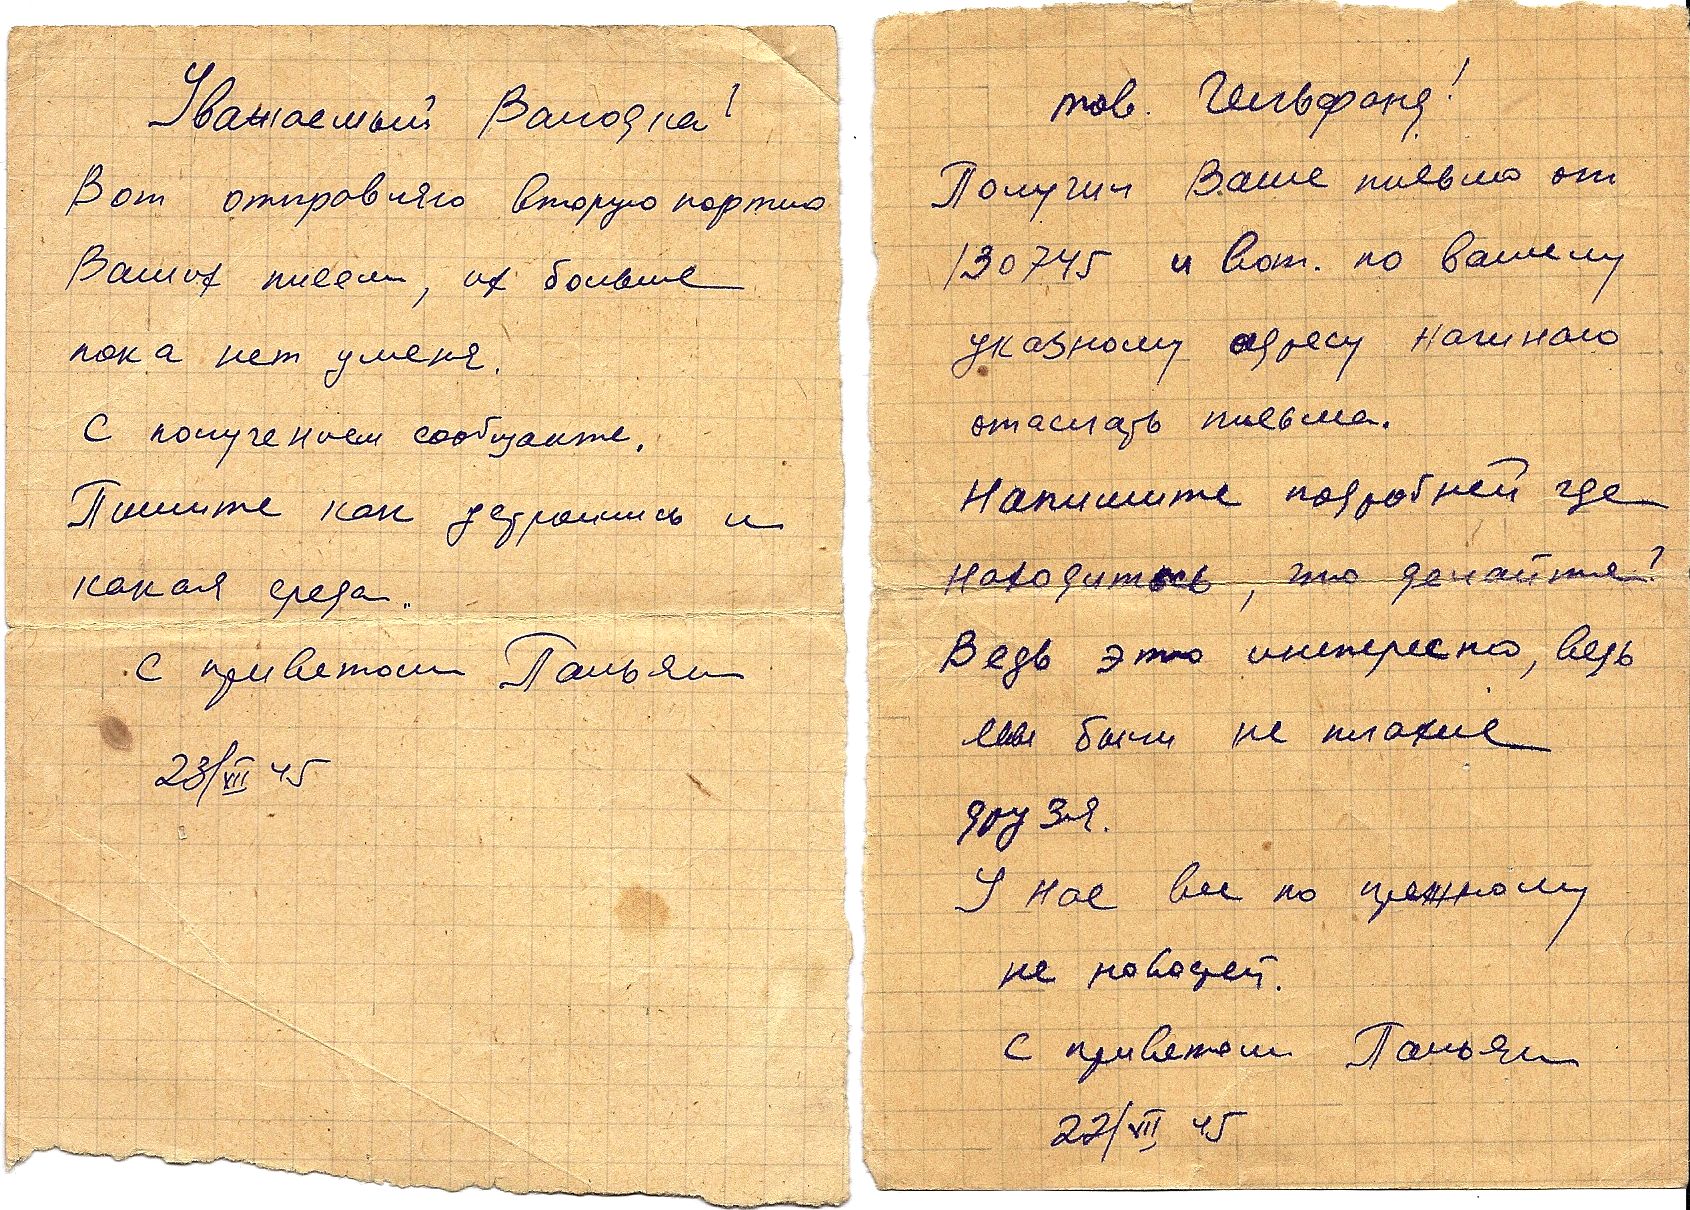 Уважаемый Валодка!
Вот отправляю вторую портию
Вашых писем, их больше
пока нет уменя.
С получением сообщайте.
Пишите как устроились и
какая среда.
С приветом Паньян
23/XII 45
тов. Гельфанд!
Получил Ваше письмо от
130745 и вот. по вашему
указному адресу начинаю
отаслать письма.
Напишите подробней где
находитесь, что делайте?
Ведь это интересно, ведь
мы были не плохие
друзья.
У нас все по прежному
не новостей.
С приветом Паньян
22/VII 45